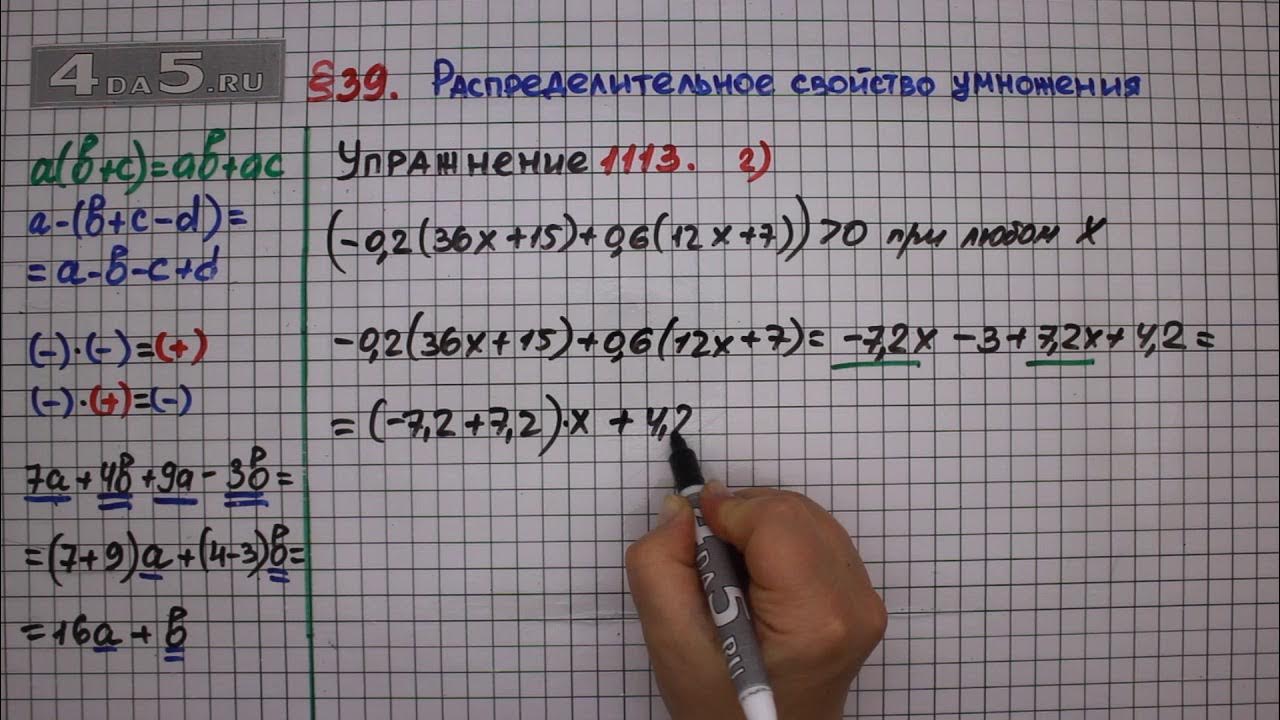 4DA5.RU
§39. Распределительное свойство умножения
a(b+c)=ab+ac
a-(b+c-d)=
=a-b-c+d
(-)·(-)=(+)
(-)·(+)=(-)
7a+4b+9a-3b=
=(7+9)a+(4-3)b=
=16a+b
Упражнение 1113. г)
(-0,2(36x+15)+0,6(12x+7))>0 при любом x
-0,2(36x+15)+0,6(12x+7)=-7,2x-3+7,2x+4,2=
=(-7,2+7,2)·x+4,2
4DA5.RU